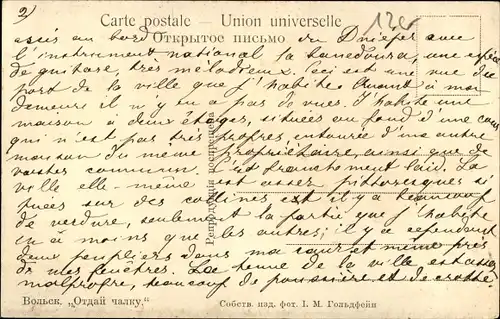 2)
Carte postale — Union universelle
12 er
assis au bord du Dnieper avec
Открытое письмо
l'instrument national la bandoura, une espèce
de guitare, très mélodieux. Ceci est une vue du
port de la ville que j'habite. Quant à ma
demeure il n'y en a pas de vues. J'habite une
maison à deux étages, située au fond d'une cour
qui n'est pas très propre, entourée d'une autre
maison du même propriétaire, ainsi que de
vastes communs. C'est franchement laid. La
ville elle-même est assez pittoresque, si
tuée sur des collines et il y a beaucoup
de verdure, seulement la partie que j'habite
en a moins que les autres; il y a cependant
deux peupliers dans ma cour et même près
de mes fenêtres. La tenue de la ville est assez
malpropre, beaucoup de poussière et de crotte
Репродукция воспрещена
Вольск. „Отдай чалку."
Собств. изд. фот. І. М. Гольдфейн